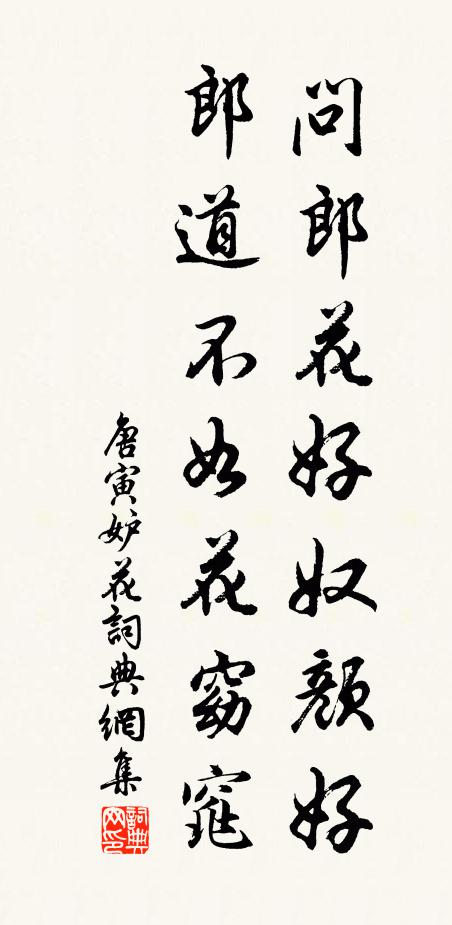 問郎花好奴顏好
郎道不如花窈窕
唐寅妒花詞典網集
詞典
网印